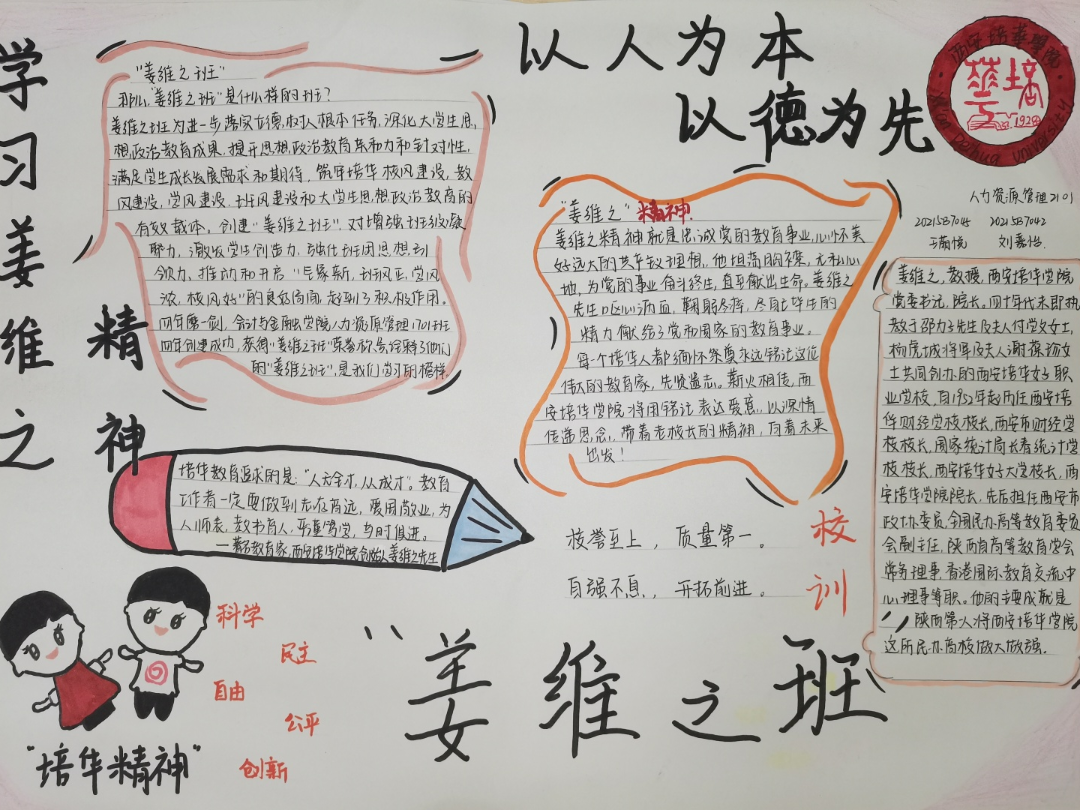 学习姜维之
精神
以人为本
以德为先
西安培华学院
Xi'an Peihua University
培华
1928
人力资源管理2101
2021537045 2021537042
刘嘉怡
"姜维之班"
那么"姜维之班"是什么样的班?
姜维之班为进一步落实立德树人根本任务,深化大学生思
想政治教育成果,提升思想政治教育亲和力和针对性,
满足学生成长发展需求和期待,筑牢培华校风建设,教
风建设,学风建设,班风建设和大学生思想政治教育的
有效载体,创建"姜维之班".对增强班级凝
聚力,激发学生创造力,强化班团思想引
领力,推动和开启"气象新,班风正,学风
浓,校风好"的良好局面,起到了积极作用。
四年磨一剑,会计与金融学院人力资源管理1701班
四年创建成功,获得"姜维之班"荣誉称号,诠释了他们
的"姜维之班",是我们学习的榜样.
"姜维之"精神
姜维之精神就是忠诚党的教育事业,心怀美
好远大的共产主义理想,他坦荡胸襟,无私心
地,为党的事业奋斗终生,直至献出生命。姜维之
先生呕心沥血,鞠躬尽瘁,尽自己毕生的
精力献给了党和国家的教育事业。
每个培华人都缅怀崇尊永远铭记这位
伟大的教育家,先贤遗志。薪火相传,西
安培华学院将用铭记表达爱意,以深情
传递思念,带着老校长的精神,向着未来
出发!
姜维之,教授,西安培华学院
党委书记,院长,四十年代末即执
教于邵力子先生及夫人付学文女士,
杨虎城将军及夫人谢葆祯女
士共同创办的西安培华女子职
业学校,自1952年起历任西安培
华财经学校校长,西安市财经学
校校长,国家统计局长春统计学
校校长,西安培华女子大学校长,西
安培华学院院长,先后担任西安市
政协委员,全国民办高等教育委员
会副主任,陕西省高等教育学会
常务理事,香港国际教育交流中
心理事等职。他的主要成就是
陕西第一人将西安培华学院
这所民办高校做大做强.
培华教育追求的是:"人无全才,人人成才"。教育
工作者一定要做到志存高远,爱国敬业,为
人师表,教书育人,严谨笃学,与时俱进。
——著名教育家,西安培华学院创始人姜维之先生
校誉至上,质量第一。
自强不息,开拓前进。
校训
科学
民主
自由
公平
创新
"培华精神"
"姜维之班